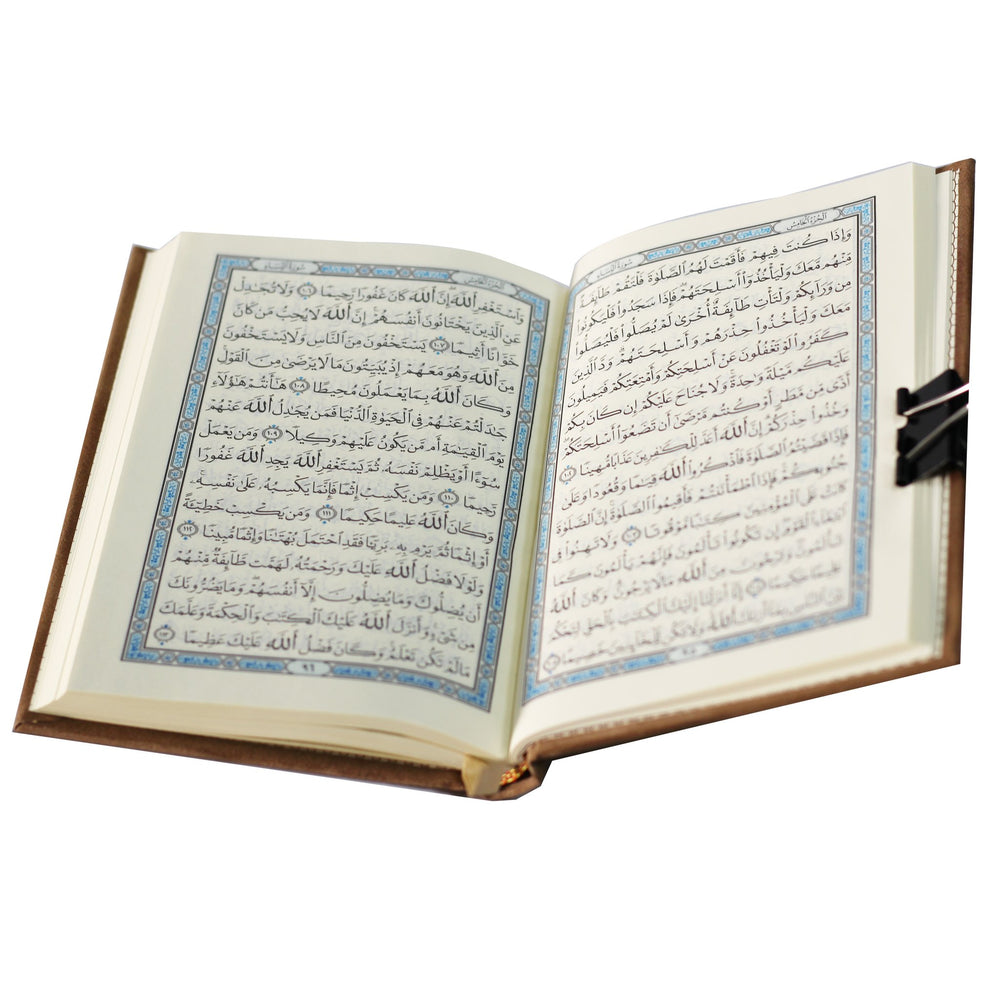 الجزء الخامس
سورة النساء
وَإِذَا كُنتَ فِيهِمْ فَأَقَمْتَ لَهُمُ ٱلصَّلَوٰةَ فَلْتَقُمْ طَآئِفَةٌ
مِّنْهُم مَّعَكَ وَلْيَأْخُذُوٓا۟ أَسْلِحَتَهُمْ فَإِذَا سَجَدُوا۟ فَلْيَكُونُوا۟
مِن وَرَآئِكُمْ وَلْتَأْتِ طَآئِفَةٌ أُخْرَىٰ لَمْ يُصَلُّوا۟ فَلْيُصَلُّوا۟
مَعَكَ وَلْيَأْخُذُوا۟ حِذْرَهُمْ وَأَسْلِحَتَهُمْ ۗ وَدَّ ٱلَّذِينَ
كَفَرُوا۟ لَوْ تَغْفُلُونَ عَنْ أَسْلِحَتِكُمْ وَأَمْتِعَتِكُمْ فَيَمِيلُونَ
عَلَيْكُم مَّيْلَةً وَٰحِدَةً ۚ وَلَا جُنَاحَ عَلَيْكُمْ إِن كَانَ بِكُمْ
أَذًى مِّن مَّطَرٍ أَوْ كُنتُم مَّرْضَىٰٓ أَن تَضَعُوٓا۟ أَسْلِحَتَكُمْ ۖ
وَخُذُوا۟ حِذْرَكُمْ ۗ إِنَّ ٱللَّهَ أَعَدَّ لِلْكَٰفِرِينَ عَذَابًا مُّهِينًا ١٠٢
فَإِذَا قَضَيْتُمُ ٱلصَّلَوٰةَ فَٱذْكُرُوا۟ ٱللَّهَ قِيَٰمًا وَقُعُودًا وَعَلَىٰ
جُنُوبِكُمْ ۚ فَإِذَا ٱطْمَأْنَنتُمْ فَأَقِيمُوا۟ ٱلصَّلَوٰةَ ۚ إِنَّ ٱلصَّلَوٰةَ
كَانَتْ عَلَى ٱلْمُؤْمِنِينَ كِتَٰبًا مَّوْقُوتًا ١٠٣ وَلَا تَهِنُوا۟ فِى
ٱبْتِغَآءِ ٱلْقَوْمِ ۖ إِن تَكُونُوا۟ تَأْلَمُونَ فَإِنَّهُمْ يَأْلَمُونَ كَمَا
تَأْلَمُونَ ۖ وَتَرْجُونَ مِنَ ٱللَّهِ مَا لَا يَرْجُونَ ۗ وَكَانَ ٱللَّهُ
عَلِيمًا حَكِيمًا ١٠٤ إِنَّآ أَنزَلْنَآ إِلَيْكَ ٱلْكِتَٰبَ بِٱلْحَقِّ لِتَحْكُمَ
بَيْنَ ٱلنَّاسِ بِمَآ أَرَىٰكَ ٱللَّهُ ۚ وَلَا تَكُن لِّلْخَآئِنِينَ خَصِيمًا ١٠٥
٩٥
الجزء الخامس
سورة النساء
وَٱسْتَغْفِرِ ٱللَّهَ ۖ إِنَّ ٱللَّهَ كَانَ غَفُورًا رَّحِيمًا ١٠٦ وَلَا تُجَٰدِلْ
عَنِ ٱلَّذِينَ يَخْتَانُونَ أَنفُسَهُمْ ۚ إِنَّ ٱللَّهَ لَا يُحِبُّ مَن كَانَ
خَوَّانًا أَثِيمًا ١٠٧ يَسْتَخْفُونَ مِنَ ٱلنَّاسِ وَلَا يَسْتَخْفُونَ
مِنَ ٱللَّهِ وَهُوَ مَعَهُمْ إِذْ يُبَيِّتُونَ مَا لَا يَرْضَىٰ مِنَ ٱلْقَوْلِ ۚ
وَكَانَ ٱللَّهُ بِمَا يَعْمَلُونَ مُحِيطًا ١٠٨ هَٰٓأَنتُمْ هَٰٓؤُلَآءِ
جَٰدَلْتُمْ عَنْهُمْ فِى ٱلْحَيَوٰةِ ٱلدُّنْيَا فَمَن يُجَٰدِلُ ٱللَّهَ عَنْهُمْ
يَوْمَ ٱلْقِيَٰمَةِ أَم مَّن يَكُونُ عَلَيْهِمْ وَكِيلًا ١٠٩ وَمَن يَعْمَلْ
سُوٓءًا أَوْ يَظْلِمْ نَفْسَهُۥ ثُمَّ يَسْتَغْفِرِ ٱللَّهَ يَجِدِ ٱللَّهَ غَفُورًا
رَّحِيمًا ١١٠ وَمَن يَكْسِبْ إِثْمًا فَإِنَّمَا يَكْسِبُهُۥ عَلَىٰ نَفْسِهِۦ ۚ
وَكَانَ ٱللَّهُ عَلِيمًا حَكِيمًا ١١١ وَمَن يَكْسِبْ خَطِيٓـَٔةً
أَوْ إِثْمًا ثُمَّ يَرْمِ بِهِۦ بَرِيٓـًٔا فَقَدِ ٱحْتَمَلَ بُهْتَٰنًا وَإِثْمًا مُّبِينًا ١١٢
وَلَوْلَا فَضْلُ ٱللَّهِ عَلَيْكَ وَرَحْمَتُهُۥ لَهَمَّت طَّآئِفَةٌ مِّنْهُمْ
أَن يُضِلُّوكَ وَمَا يُضِلُّونَ إِلَّآ أَنفُسَهُمْ ۖ وَمَا يَضُرُّونَكَ
مِن شَىْءٍ ۚ وَأَنزَلَ ٱللَّهُ عَلَيْكَ ٱلْكِتَٰبَ وَٱلْحِكْمَةَ وَعَلَّمَكَ
مَا لَمْ تَكُن تَعْلَمُ ۚ وَكَانَ فَضْلُ ٱللَّهِ عَلَيْكَ عَظِيمًا ١١٣
٩٦